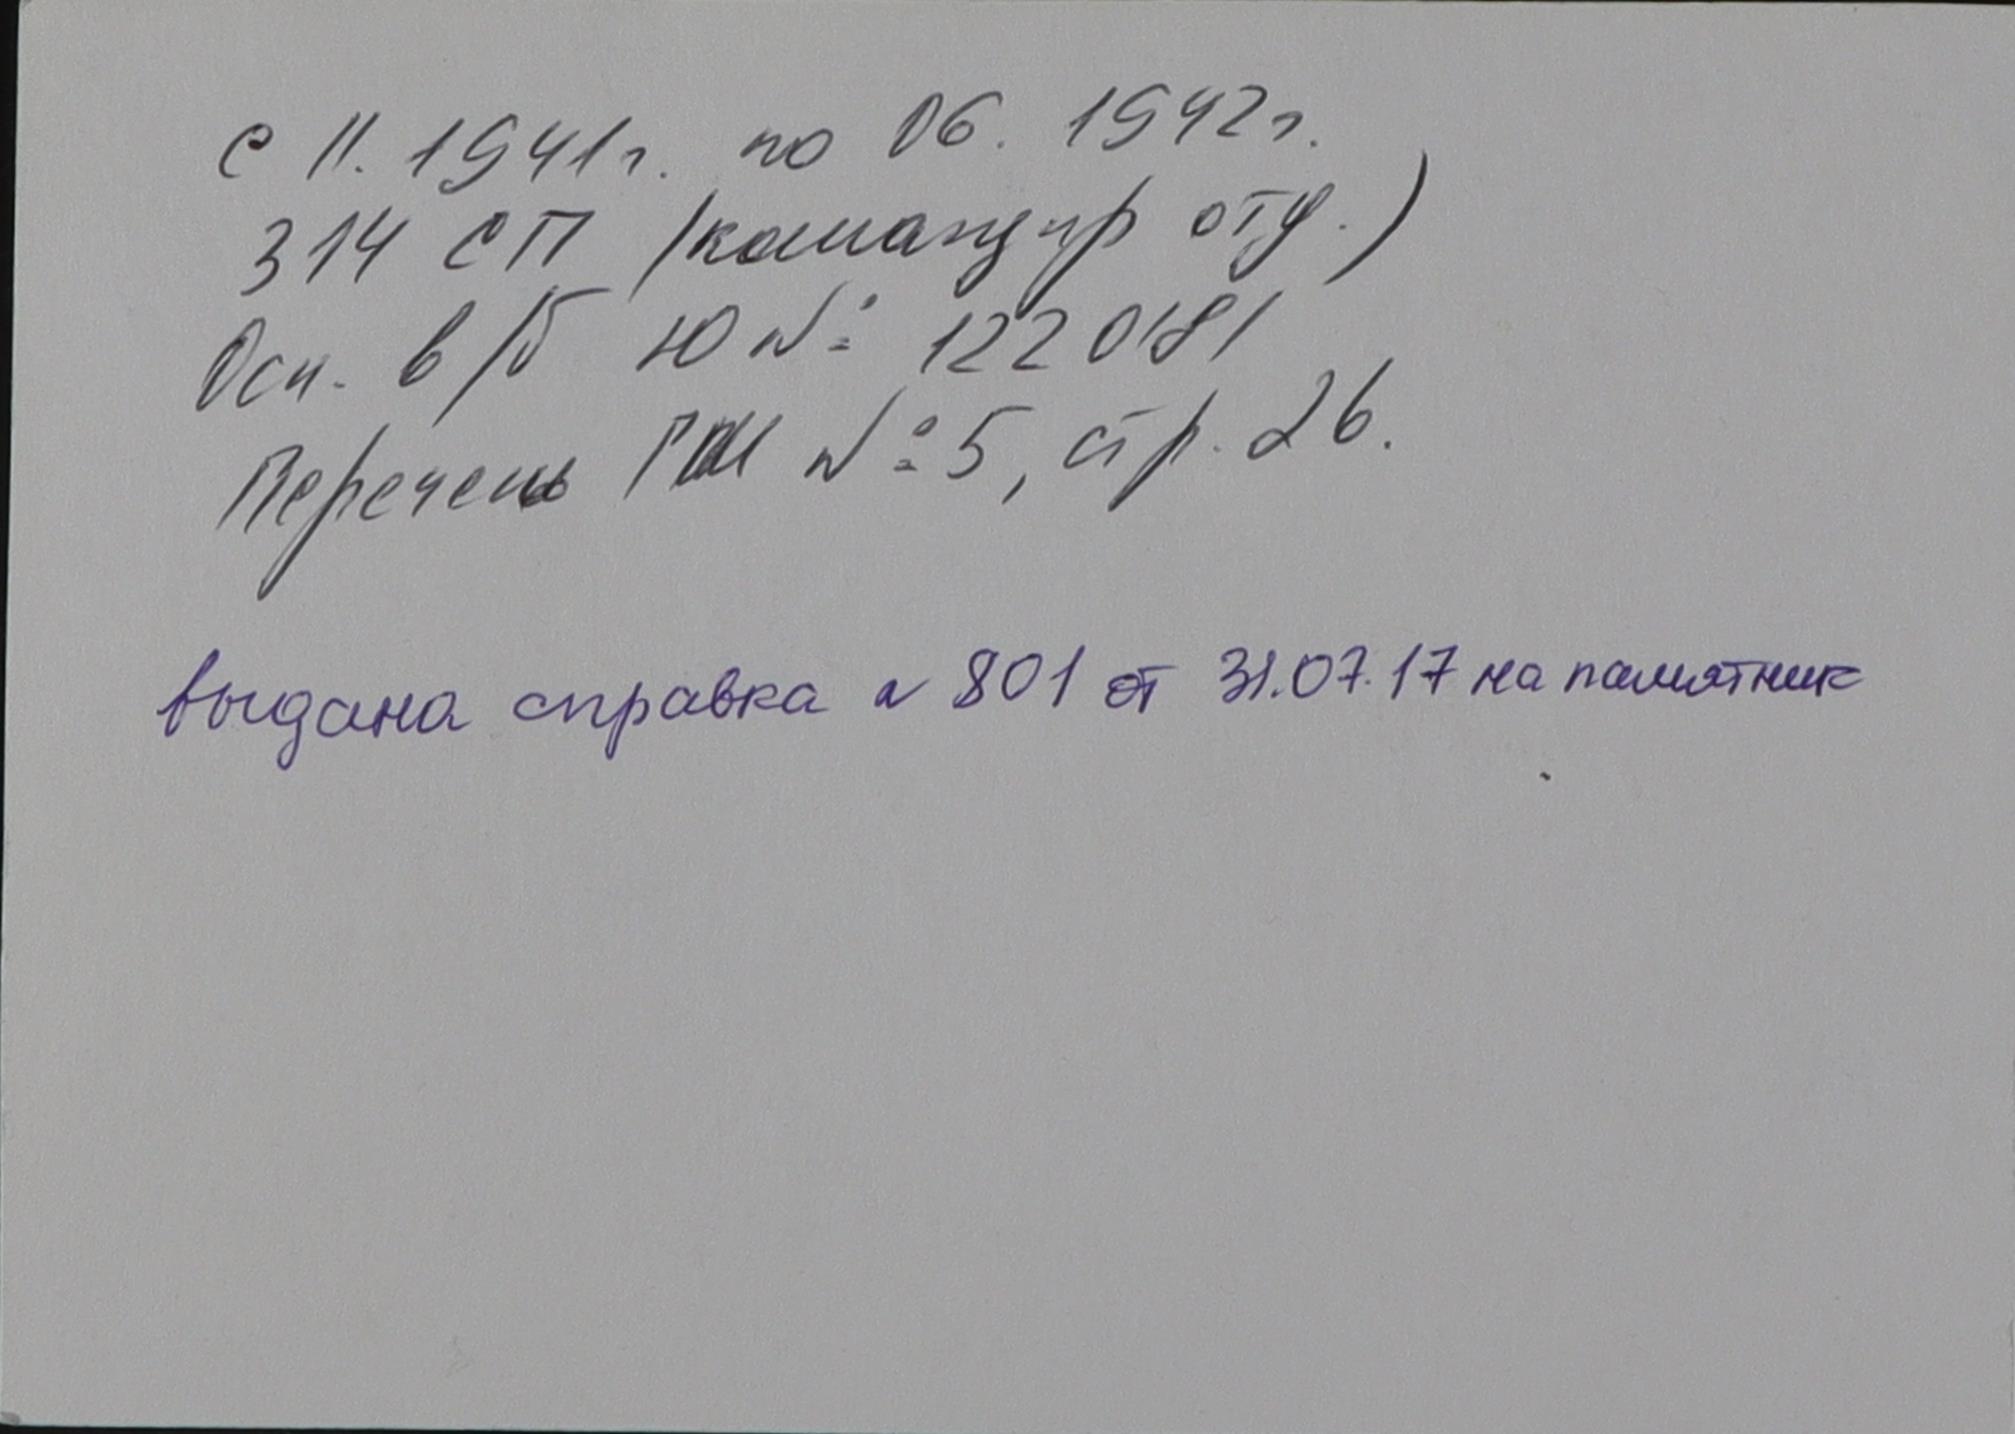 с 11. 1941г. по 06. 1942г.
314 СП (командир отд.)
Осн. в/б Ю № 1220181
Перечень ГШ № 5, стр. 26.
выдана справка № 801 от 31.07.17 на памятник